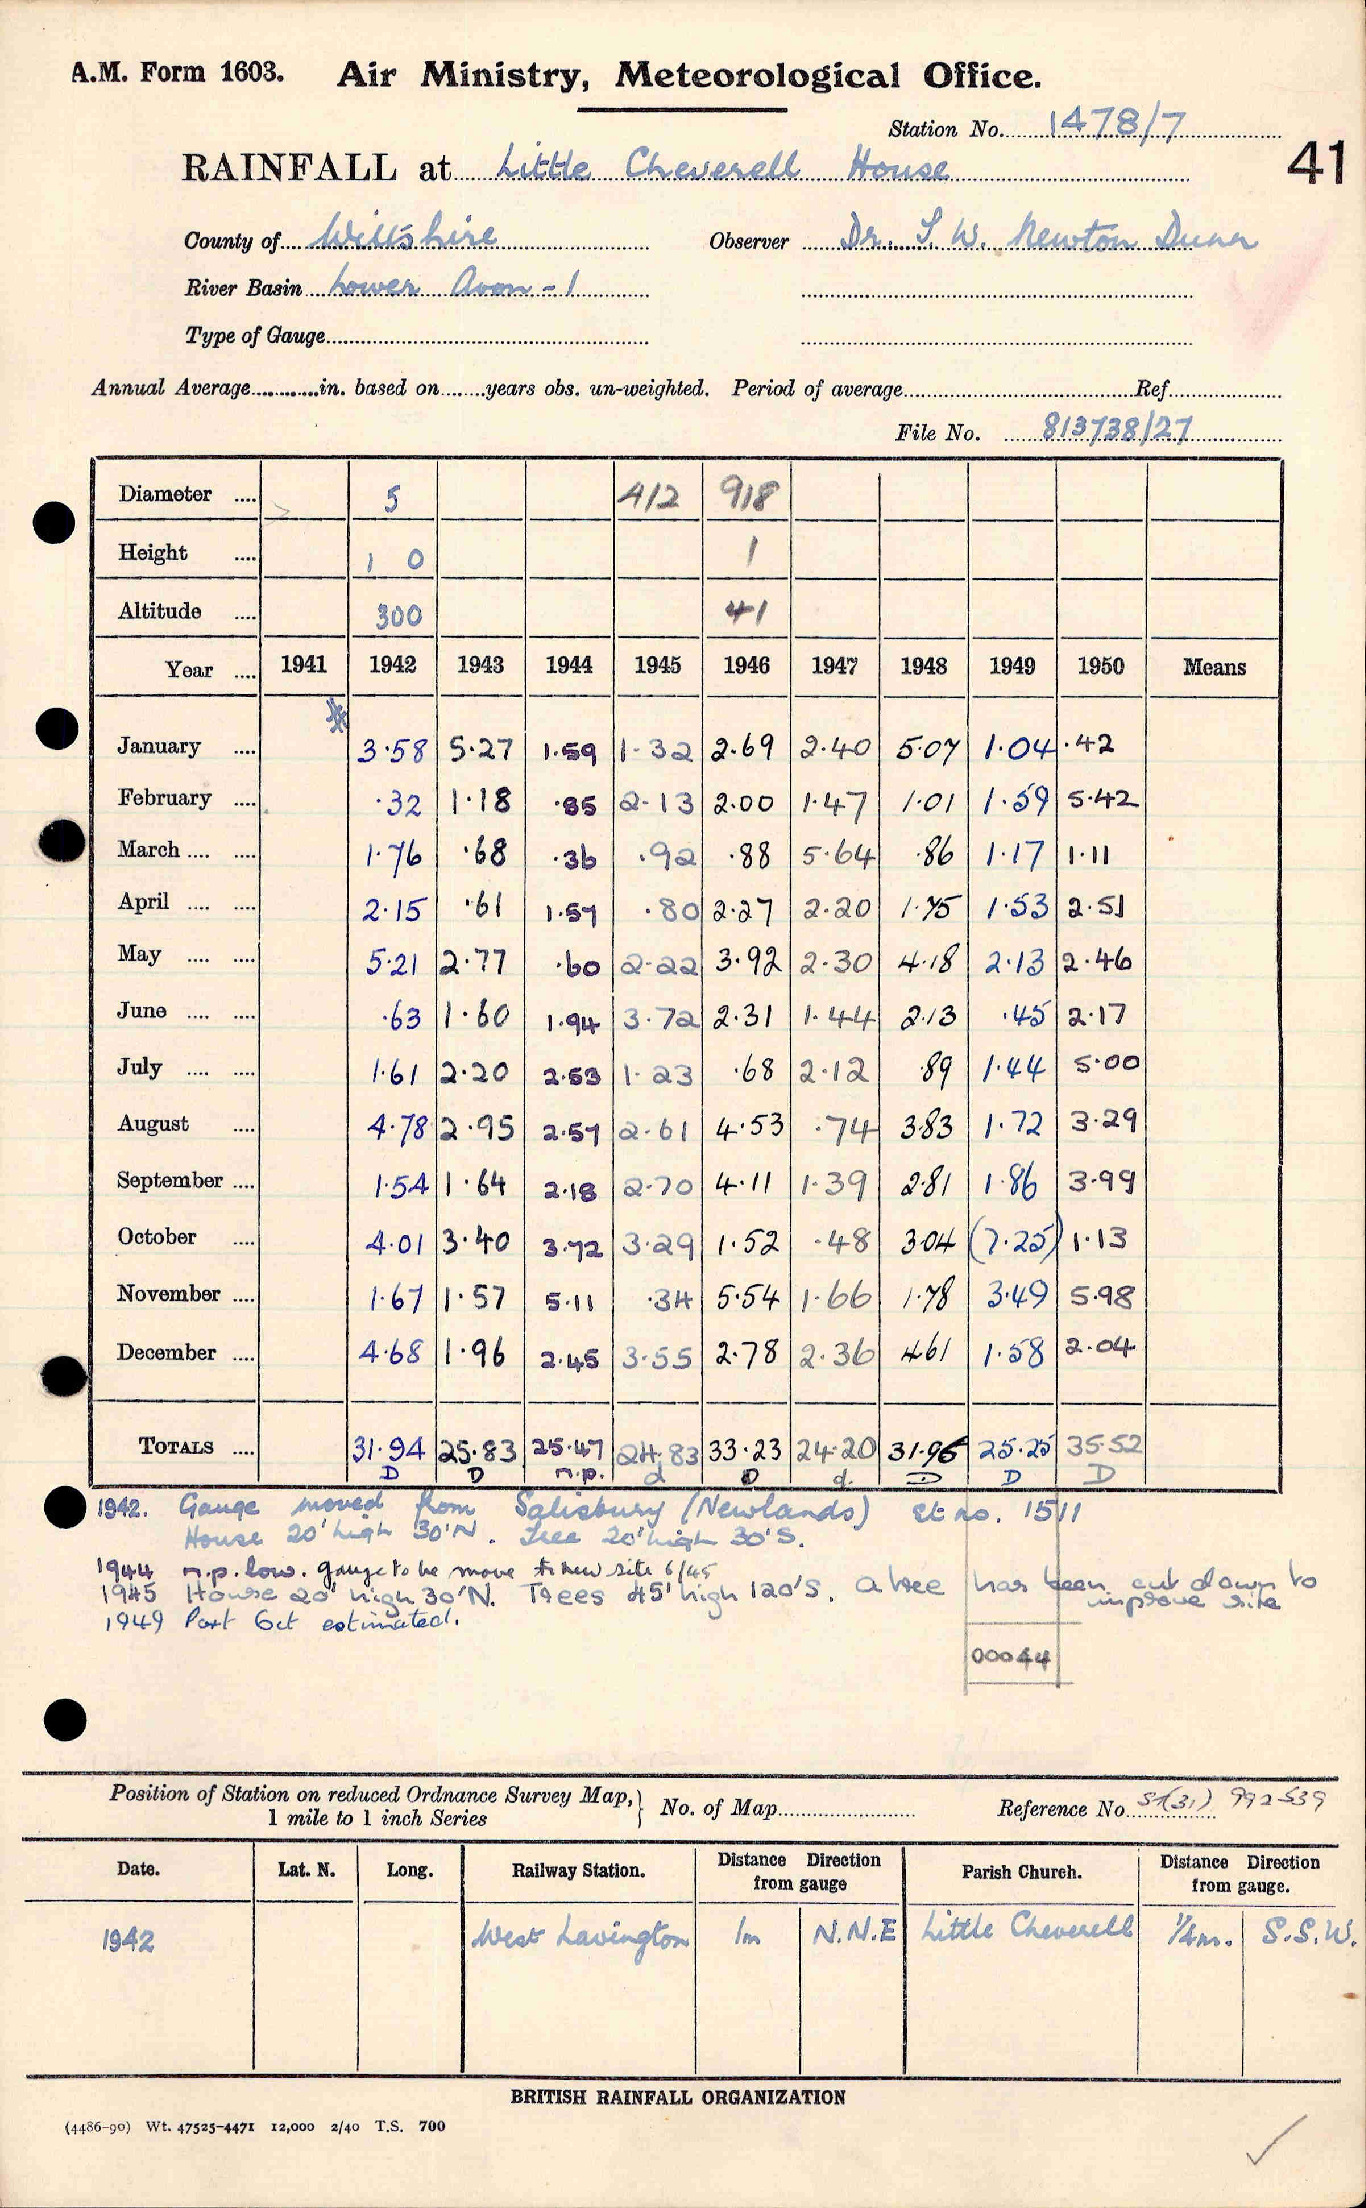 A.M. Form 1603. Air Ministry, Meteorological Office.
Station No. 1478/7
41
RAINFALL at Little Cheverell House
County of Wiltshire Observer Dr. S. W. Newton Dunn
River Basin Lower Avon - 1
Type of Gauge
Annual Average in. based on years obs. un-weighted. Period of average Ref
File No. 813738/27
Diameter .... 5 412 918
Height .... 1 0 1
Altitude .... 300 41
Year .... 1941 1942 1943 1944 1945 1946 1947 1948 1949 1950 Means
*
January .... 3·58 5·27 1·59 1·32 2·69 2·40 5·07 1·04 ·42
February .... ·32 1·18 ·85 2·13 2·00 1·47 1·01 1·59 5·42
March .... .... 1·76 ·68 ·36 ·92 ·88 5·64 ·86 1·17 1·11
April .... .... 2·15 ·61 1·57 ·80 2·27 2·20 1·75 1·53 2·51
May .... .... 5·21 2·77 ·60 2·22 3·92 2·30 4·18 2·13 2·46
June .... .... ·63 1·60 1·94 3·72 2·31 1·44 2·13 ·45 2·17
July .... .... 1·61 2·20 2·53 1·23 ·68 2·12 ·89 1·44 5·00
August .... 4·78 2·95 2·57 2·61 4·53 ·74 3·83 1·72 3·29
September .... 1·54 1·64 2·18 2·70 4·11 1·39 2·81 1·86 3·99
October .... 4·01 3·40 3·72 3·29 1·52 ·48 3·04 (7·25) 1·13
November .... 1·67 1·57 5·11 ·34 5·54 1·66 1·78 3·49 5·98
December .... 4·68 1·96 2·45 3·55 2·78 2·36 4·61 1·58 2·04
TOTALS .... 31·94 25·83 25·47 24·83 33·23 24·20 31·96 25·25 35·52
D D n.p. d D d. D D D
1942. Gauge moved from Salisbury (Newlands) St no. 1511
House 20' high 30'N. Tree 20' high 30'S.
1944 n.p. low. gauge to be move to new site 6/45
1945 House 20' high 30'N. Trees 45' high 120'S. a tree has been cut down to
improve site
1949 Part Oct estimated.
00044
Position of Station on reduced Ordnance Survey Map,
1 mile to 1 inch Series
No. of Map Reference No. ST(31) 992539
Date. Lat. N. Long. Railway Station. Distance Direction from gauge Parish Church. Distance Direction from gauge.
1942 West Lavington 1m N.N.E Little Cheverell 1/4m. S.S.W.
BRITISH RAINFALL ORGANIZATION
(4486-90) Wt. 47525-4471 12,000 2/40 T.S. 700